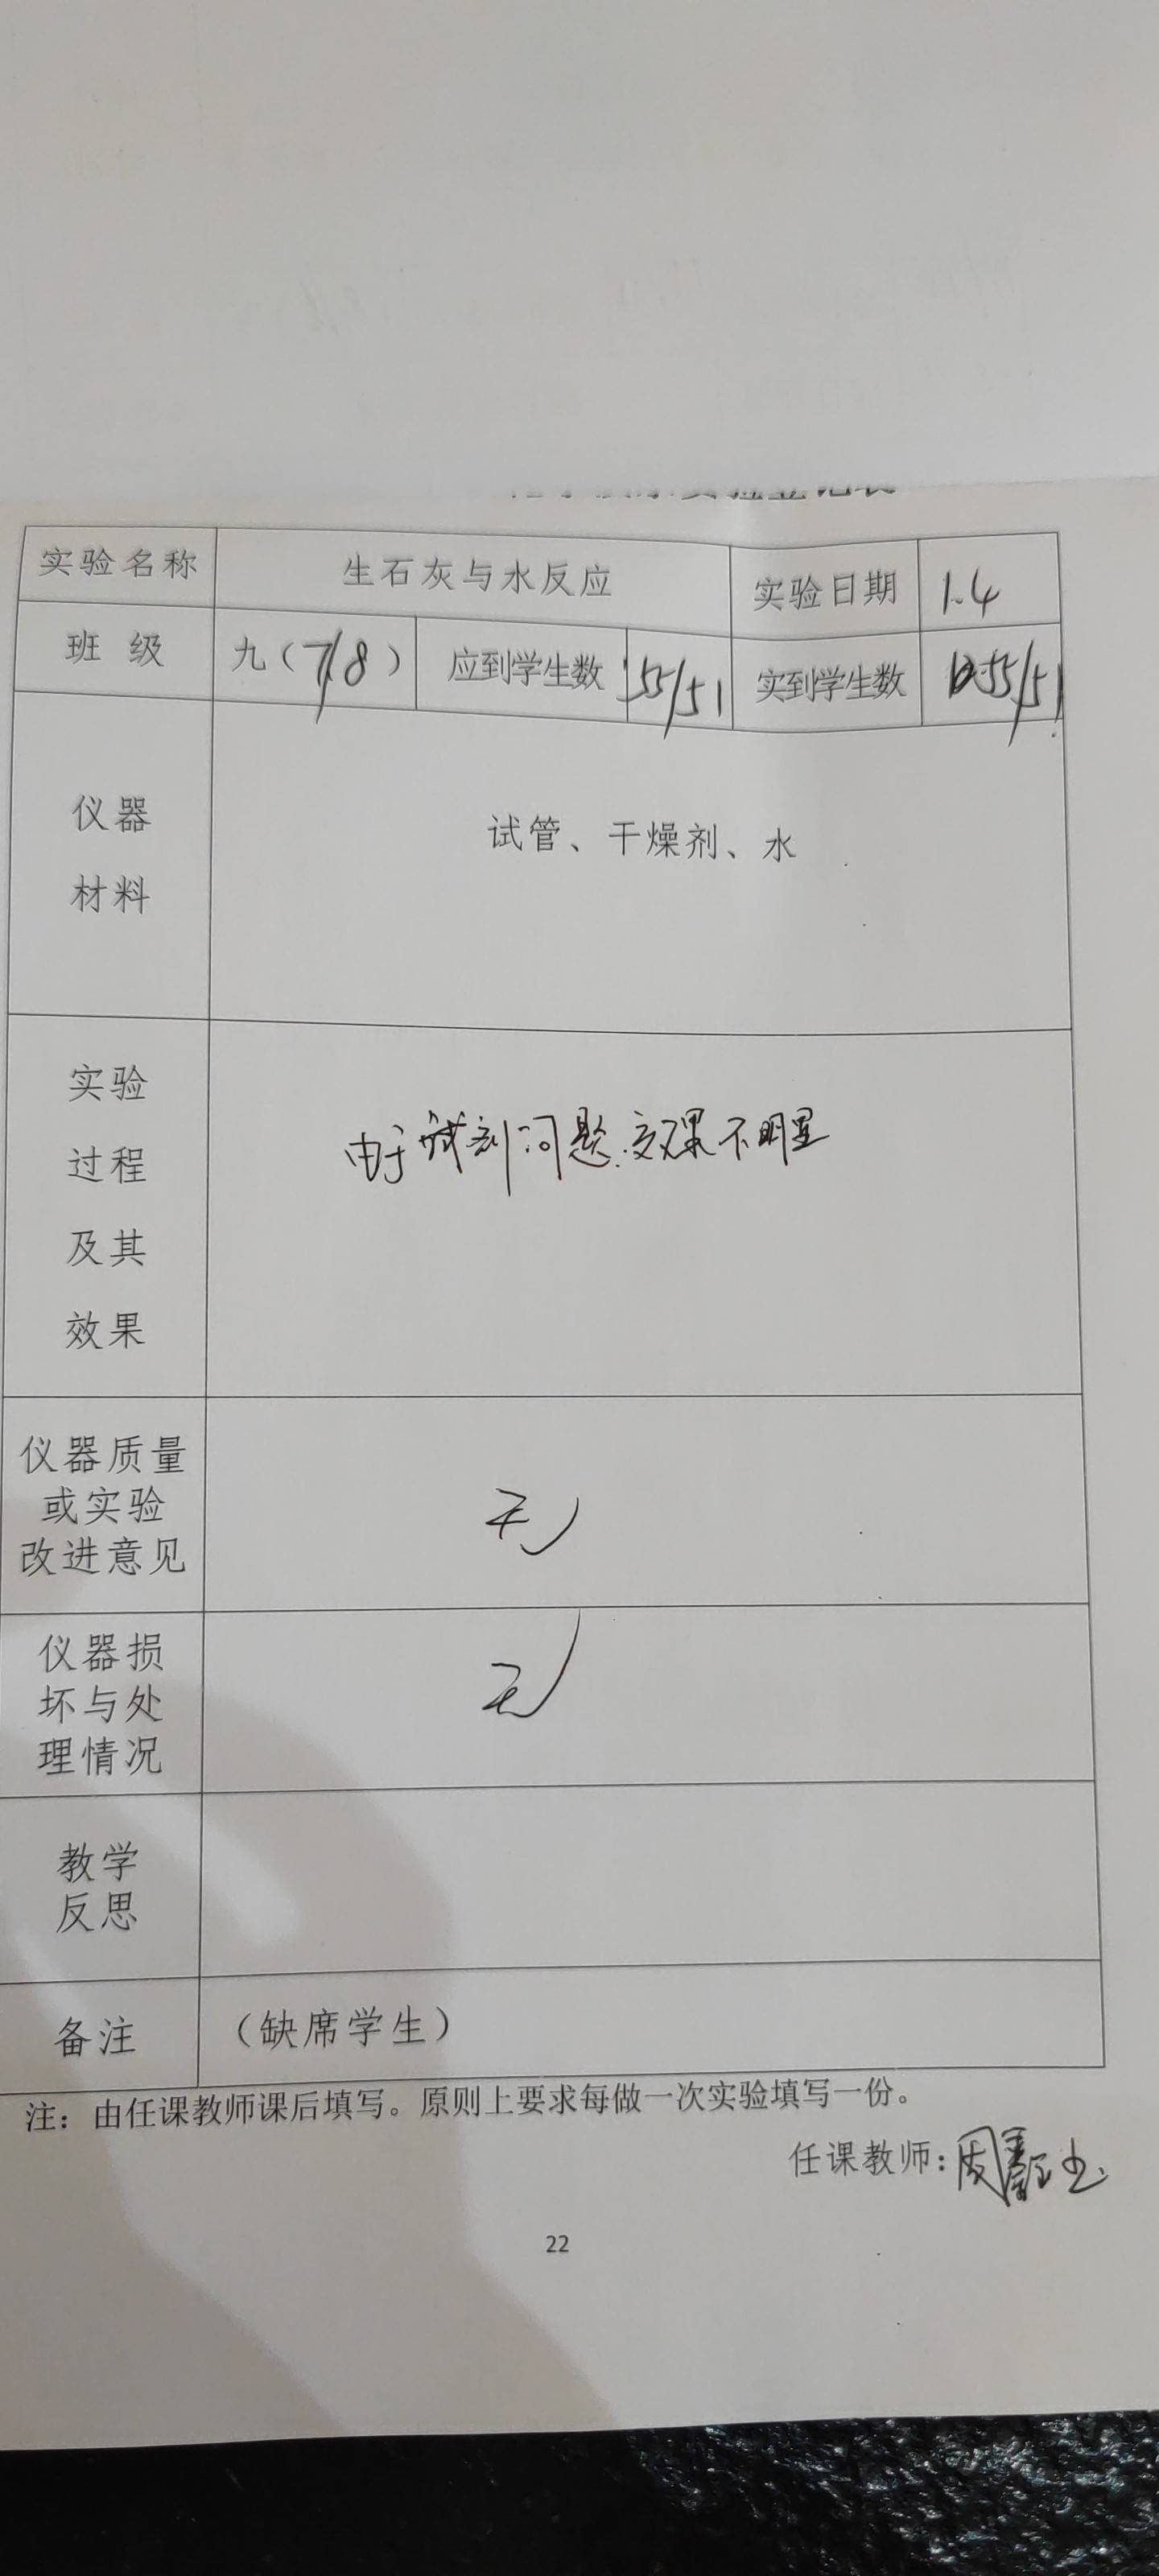 实验名称 生石灰与水反应 实验日期 1.4
班 级 九（7/8） 应到学生数 55/51 实到学生数 55/51
仪器
材料
试管、干燥剂、水
实验
过程
及其
效果
由于试剂问题.效果不明显
仪器质量
或实验
改进意见
无
仪器损
坏与处
理情况
无
教学
反思
备注 （缺席学生）
注：由任课教师课后填写。原则上要求每做一次实验填写一份。
任课教师：周
22